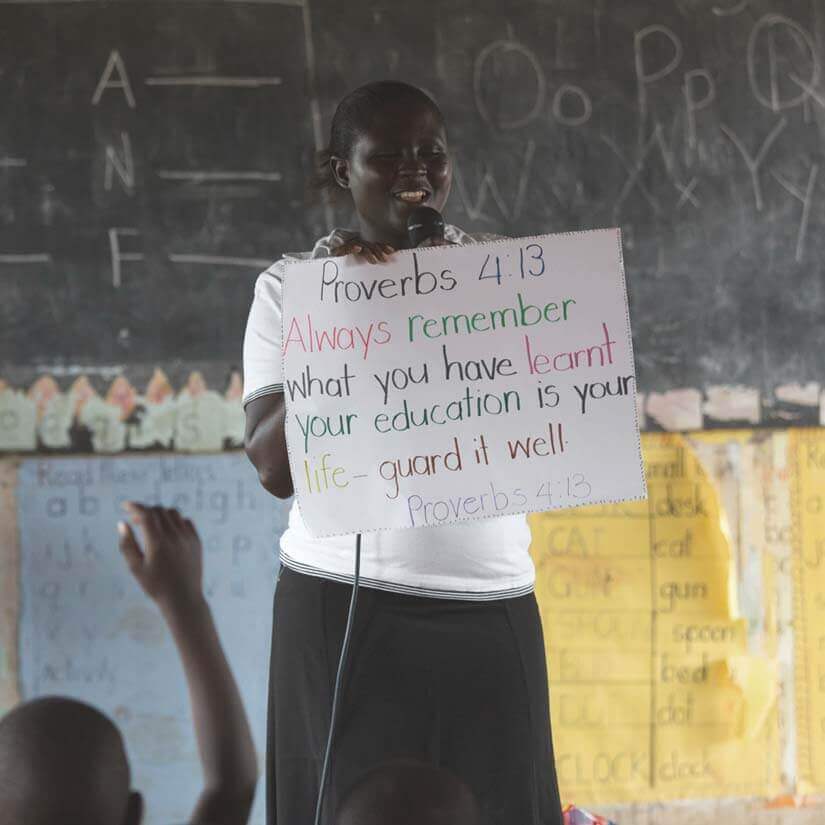 A
N
F
O o P p Q
W w X x Y y
Proverbs 4:13
Always remember
what you have learnt
your education is your
life - guard it well.
Proverbs 4:13
Read these letters
a b c d e f g h
Activity
desk
CAT cat
GUN gun
SPOON spoon
BED bed
dot
CLOCK clock